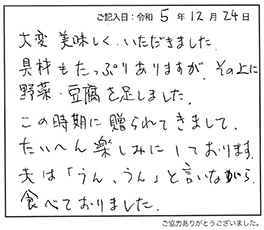 ご記入日：令和 5 年 12 月 24 日
大変 美味しく いただきました。
具材もたっぷりありますが、その上に
野菜・豆腐を足しました。
この時期に贈られてきまして、
たいへん楽しみにしております。
夫は「うん、うん」と言いながら
食べておりました。
ご協力ありがとうございました。